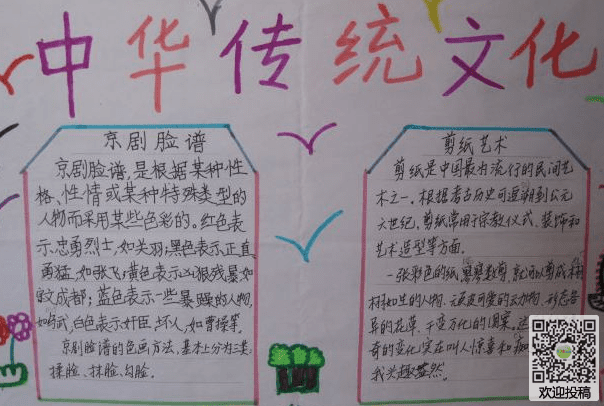 中华传统文化
京剧脸谱
京剧脸谱,是根据某种性
格、性情或某种特殊类型的
人物而采用某些色彩的。红色表
示忠勇烈士,如关羽;黑色表示正直
勇猛,如张飞;黄色表示凶狠残暴如
宇文成都;蓝色表示一些暴躁的人物,
白色表示奸臣、坏人,如曹操等。
京剧脸谱的色画方法,基本上分为三类:
揉脸、抹脸、勾脸。
剪纸艺术
剪纸是中国最为流行的民间艺
术之一。根据考古历史可追溯到公元
六世纪。剪纸常用于宗教仪式、装饰和
艺术造型等方面。
一张彩色的纸,就可以剪成
的人物、可爱的动物、形态各
异的花草、千变万化的图案。
奇的变化实在叫人惊喜和
我兴趣盎然。
欢迎投稿